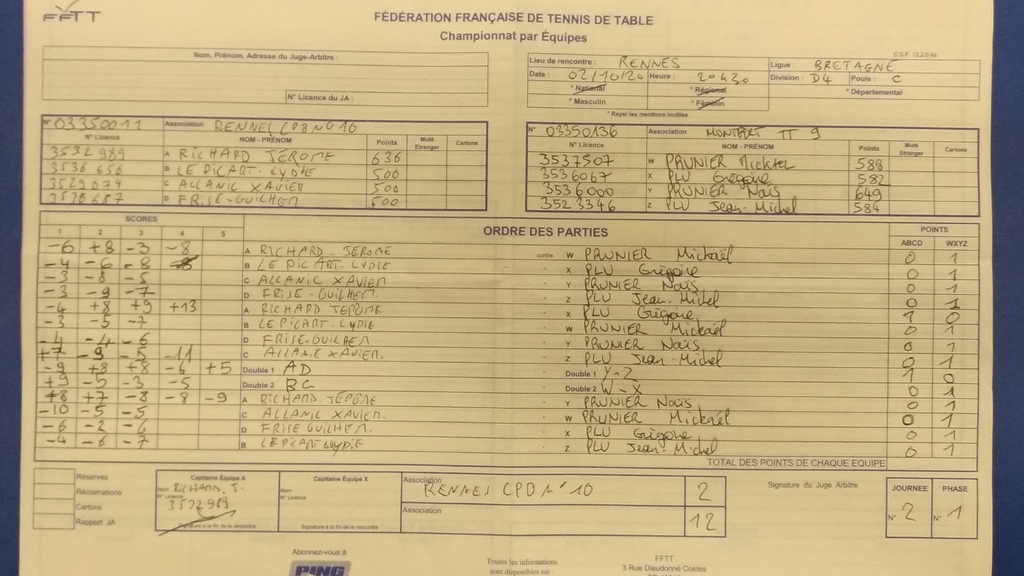 FFTT
FÉDÉRATION FRANÇAISE DE TENNIS DE TABLE
Championnat par Équipes
Nom, Prénom, Adresse du Juge-Arbitre :
N° Licence du JA :
Lieu de rencontre : RENNES Ligue : BRETAGNE
Date : 02/10/20 Heure : 20H30 Division : D4 Poule : C
* National * Régional * Départemental
* Masculin * Féminin
* Rayer les mentions inutiles
N° 03350011 Association RENNES CPB N°10
N° Licence NOM - PRÉNOM Points Muté Etranger Cartons
3532989 A RICHARD JEROME 636
3536656 B LE PICART LYDIE 500
3529074 C ALLANIC XAVIER 500
D FRISE-GUILHEM 500
N° 03350136 Association MONTFORT TT 9
N° Licence NOM - PRÉNOM Points Muté Etranger Cartons
3537507 W PRUNIER Mickaël 588
3536067 X PLU Grégoire 582
3536000 Y PRUNIER Naïs 649
3523346 Z PLU Jean-Michel 584
SCORES ORDRE DES PARTIES POINTS
1 2 3 4 5 ABCD WXYZ
-6 +8 -3 -8 A RICHARD JEROME contre W PRUNIER Mickaël 0 1
-4 -6 -8 B LE PICART LYDIE X PLU Grégoire 0 1
-3 -8 -5 C ALLANIC XAVIER Y PRUNIER Naïs 0 1
-3 -9 -7 D FRISE-GUILHEM Z PLU Jean-Michel 0 1
-4 +8 +9 +13 A RICHARD JEROME X PLU Grégoire 1 0
-3 -5 -7 B LE PICART LYDIE W PRUNIER Mickaël 0 1
-4 -4 -6 D FRISE-GUILHEM Y PRUNIER Naïs 0 1
+7 -9 -5 -11 C ALLANIC XAVIER. Z PLU Jean-Michel 0 1
-9 +8 +8 -6 +5 Double 1 AD Double 1 Y-Z 1 0
+9 -5 -3 -5 Double 2 BC Double 2 W-X 0 1
+8 +7 -8 -8 -9 A RICHARD JEROME Y PRUNIER Naïs 0 1
-10 -5 -5 C ALLANIC XAVIER. W PRUNIER Mickaël 0 1
-6 -2 -6 D FRISE GUILHEM X PLU Grégoire 0 1
-4 -6 -7 B LE PICART LYDIE Z PLU Jean-Michel 0 1
TOTAL DES POINTS DE CHAQUE EQUIPE
Réserves
Réclamations
Cartons
Rapport JA
Capitaine Équipe A
Nom RICHARD J.
N° Licence 3532989
Signature à la fin de la rencontre
Capitaine Équipe X
Nom
N° Licence
Signature à la fin de la rencontre
Association RENNES CPB N°10 2
Association 12
Signature du Juge Arbitre
JOURNEE PHASE
N° 2 N° 1
Abonnez-vous à
PING
Toutes les informations
sont disponibles sur :
FFTT
3 Rue Dieudonné Costes